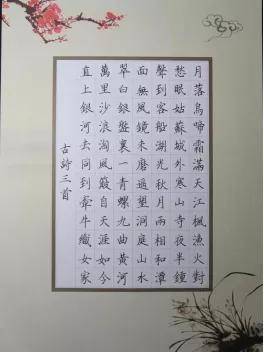 月落烏啼霜滿天江楓漁火對
愁眠姑蘇城外寒山寺夜半鐘
聲到客船湖光秋月兩相和潭
面無風鏡未磨遥望洞庭山水
翠白銀盤裏一青螺九曲黃河
萬里沙浪淘風簸自天涯如今
直上銀河去同到牽牛織女家
古詩三首